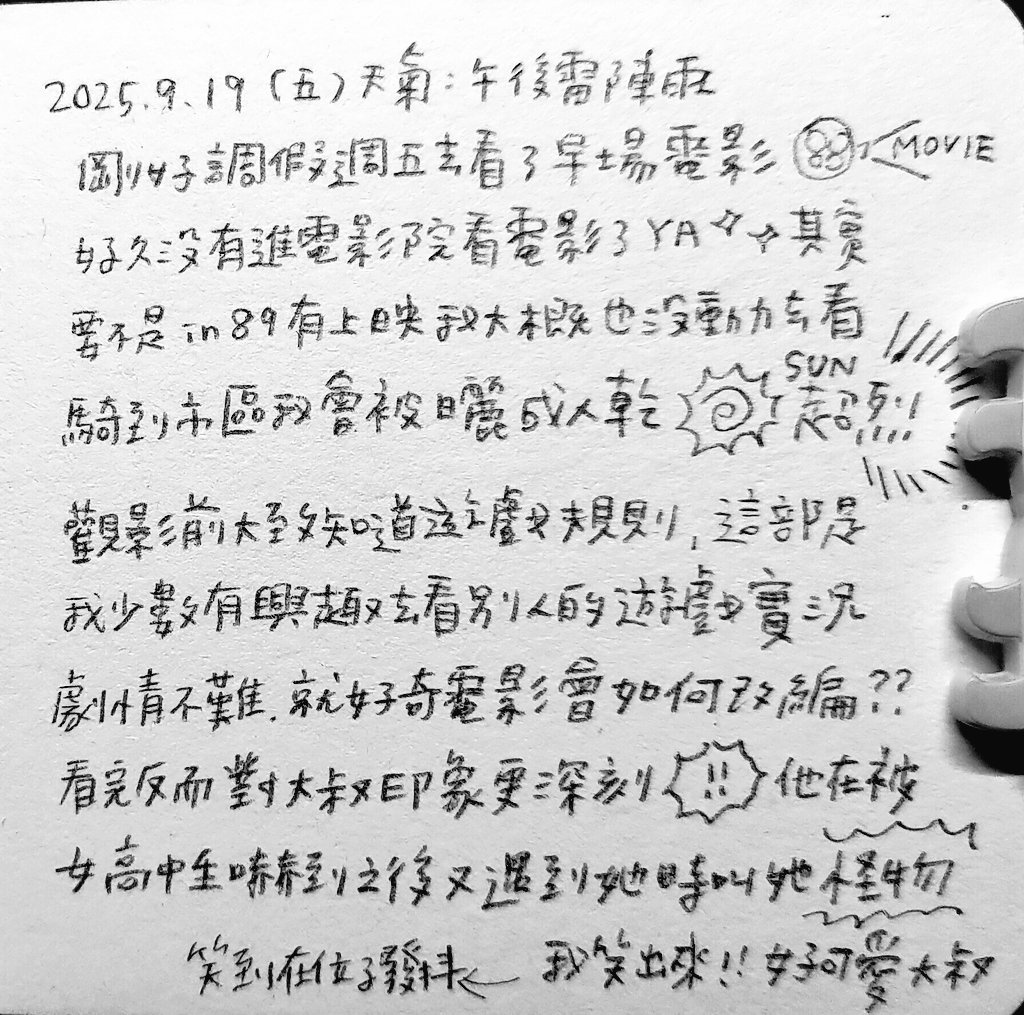 2025.9.19(五)天氣:午後雷陣雨
剛好調假這週五去看了早場電影 MOVIE
好久沒有進電影院看電影了YA 其實
要不是in89有上映我大概也沒動力去看
SUN
騎到市區我會被日曬成人乾 超烈!!
觀影前大致知道遊戲規則,這部是
我少數有興趣去看別人的遊戲實況
劇情不難.就好奇電影會如何改編??
看完反而對大叔印象更深刻 !! 他在被
女高中生嚇到之後又遇到她時叫她怪物
笑到在位子發抖← 我笑出來!!好可愛大叔